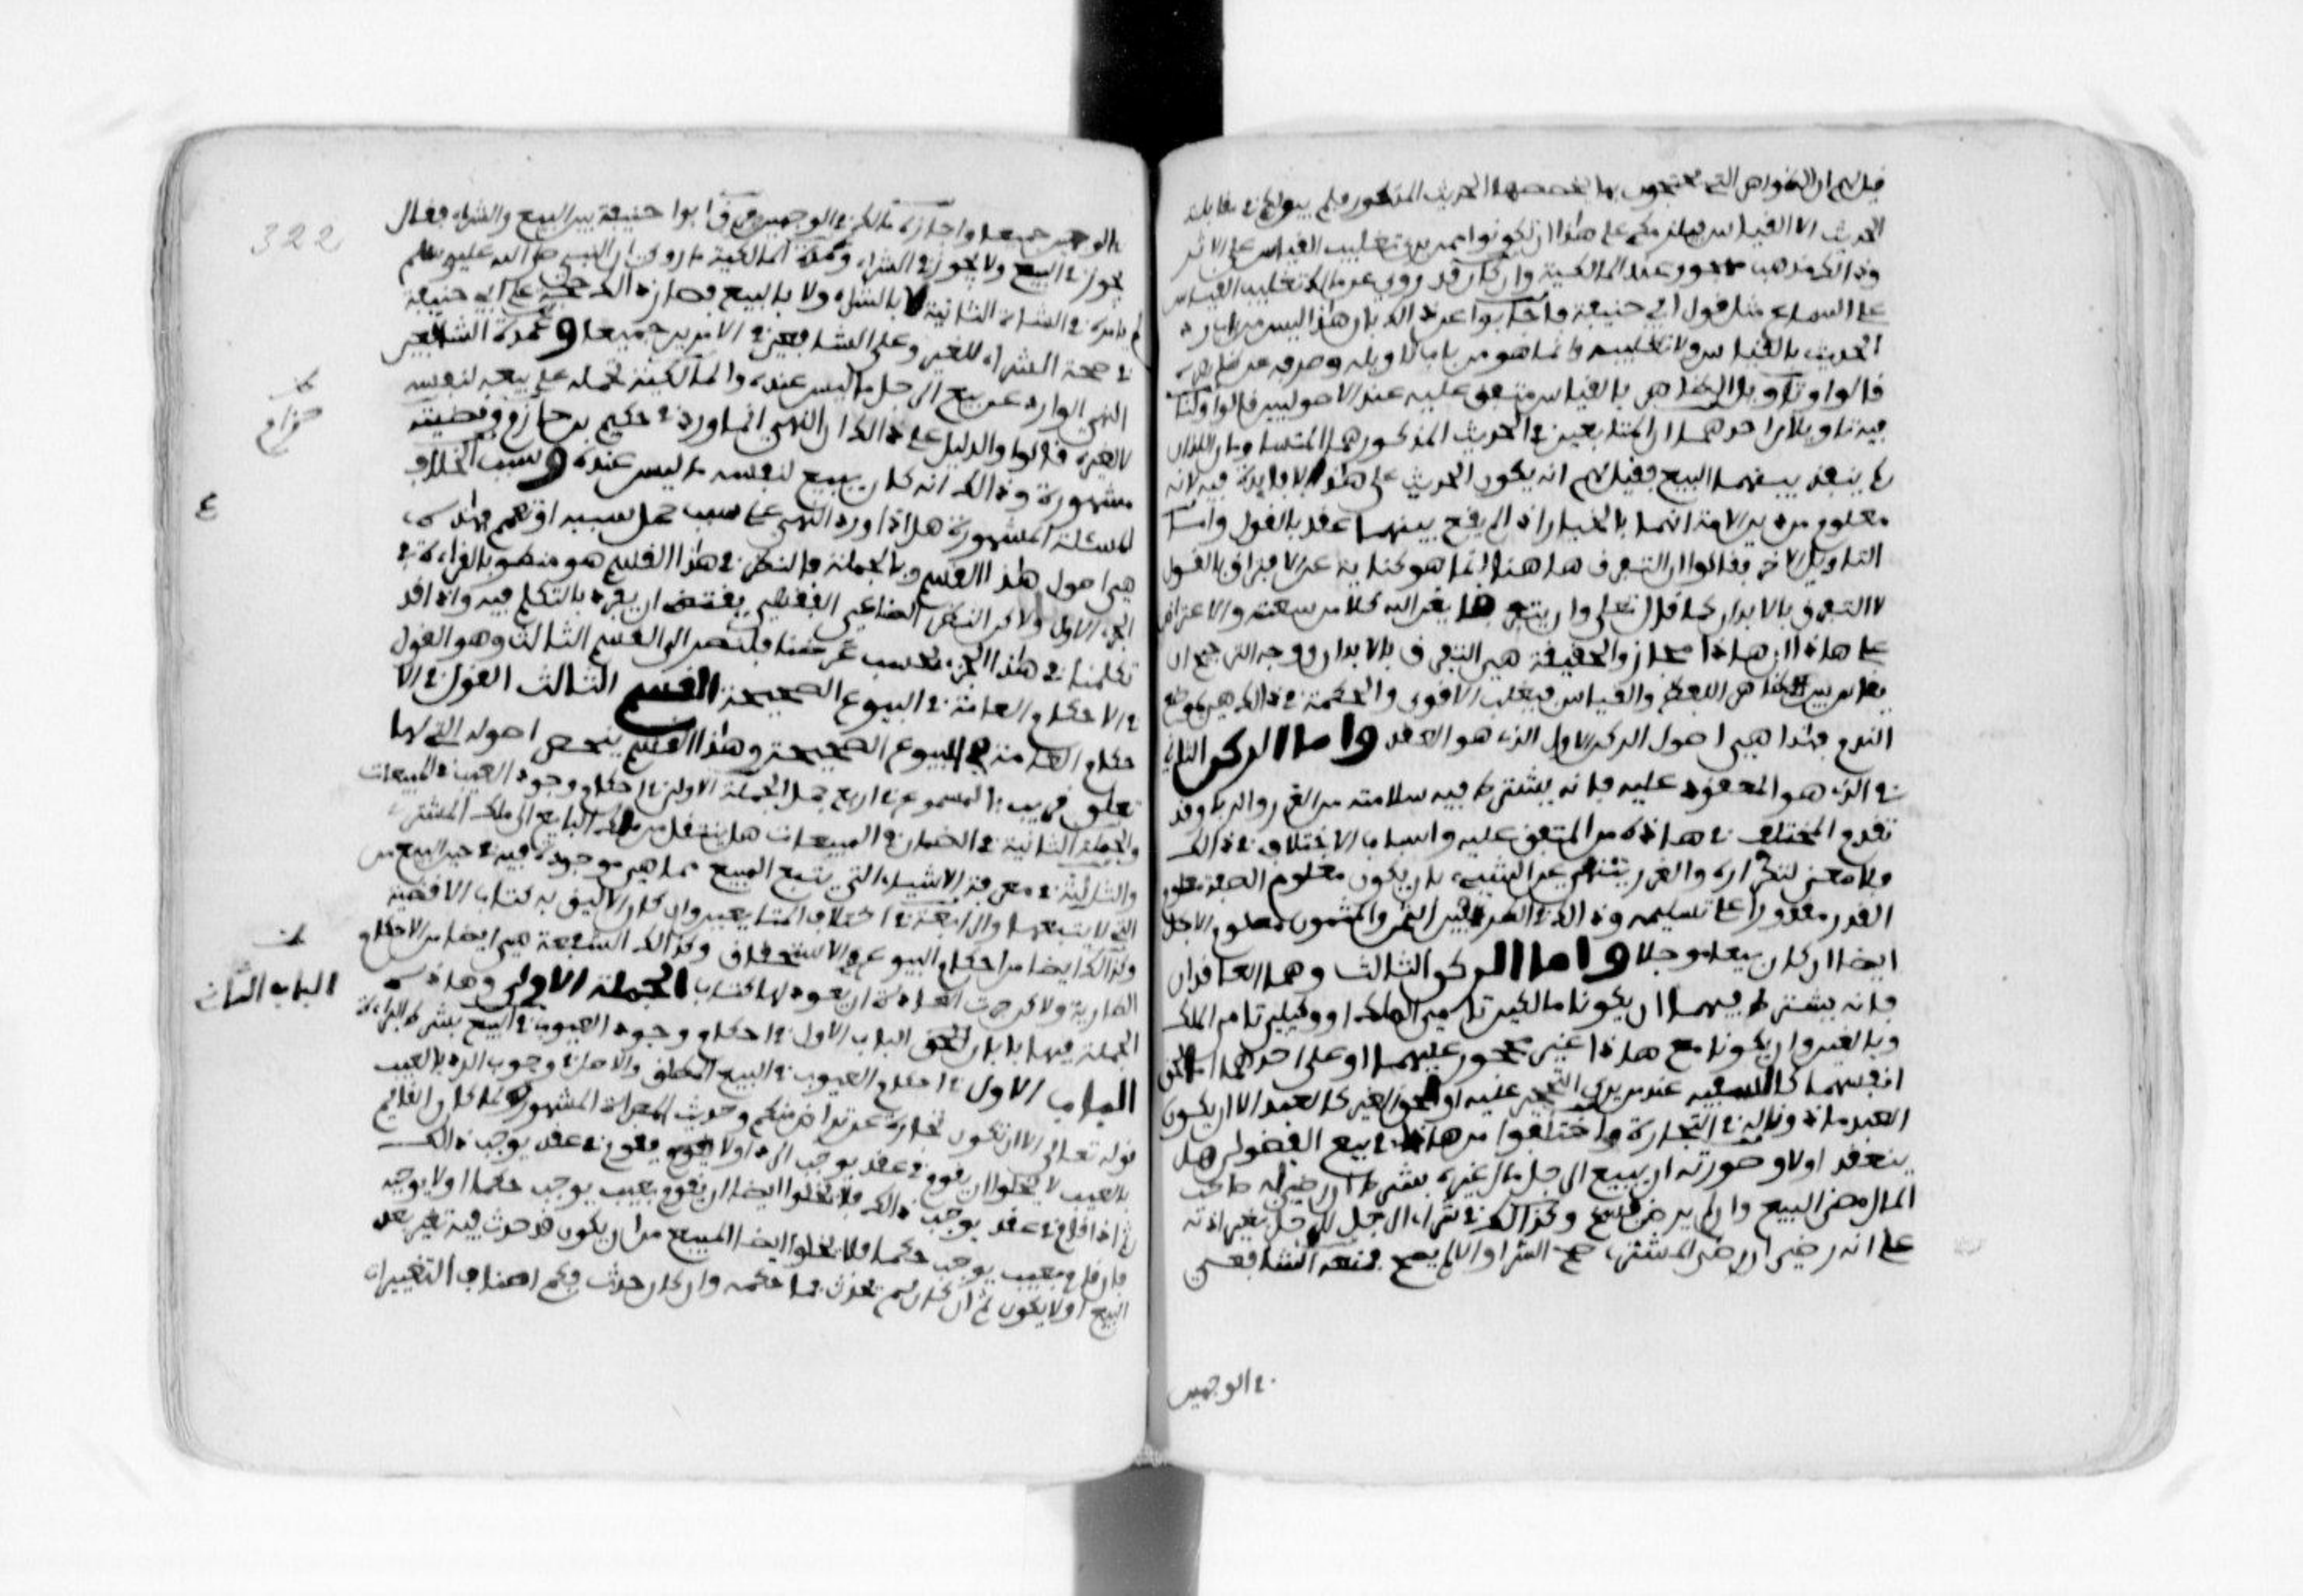 قيل لهم ان الظواهر التي تحتجون بها يخصصها الحديث المذكور فلم يبق لكم في مقابلة
الحديث الا القياس فيلزمكم على هذا ان تكونوا ممن يرى تغليب القياس على الاثر
وذالك مذهب مهجور عند المالكية وان كان قد روي عن مالك تغليب القياس
على السماع مثل قول ابي حنيفة فاجابوا عن ذالك بان هذا ليس من باب رد
الحديث بالقياس ولا تغليبه وانما هو من باب تاويله وصرفه عن ظاهره
قالوا وتاويل الظاهر بالقياس متفق عليه عند الاصوليين قالوا ولنا
فيه تاويلان احدهما ان المتبايعين في الحديث المذكور هما المتساومان اللذان
لم ينفذ بينهما البيع فقيل لهم انه يكون الحديث على هذا لا فايدة فيه لانه
معلوم من دين الامة انهما بالخيار اذ لم يقع بينهما عقد بالقول واما
التاويل الاخر فقالوا ان التفرق هاهنا انما هو كناية عن الافتراق بالقول
لا التفرق بالابدان كما قال تعلى وان يتفرقا يغن الله كلا من سعته والاعتراض
على هاذا ان هاذا مجاز والحقيقة هي التفرق بالابدان ووجه الترجيح ان
يقاس بين ظاهر اللفظ والقياس فيغلب الاقوى والحكمة في ذالك هي موضع
الندم فهذا هي اصول الركن الاول الذي هو العقد واما الركن الثاني
الذي هو المعقود عليه فانه يشترط فيه سلامته من الغرر والربا وقد
تقدم المختلف في هاذه من المتفق عليه واسباب الاختلاف في ذالك
فلا معنى لتكراره والغرر ينتفي عن الشيء بان يكون معلوم الصفة معلوم
القدر مقدورا على تسليمه وذالك في الطرفين الثمن والمثمون معلوم الاجل
ايضا ان كان بيعا موجلا واما الركن الثالث وهما العاقدان
فانه يشترط فيهما ان يكونا مالكين تامي الملك او وكيلين تامي الملك
وبالغين وان يكونا مع هاذا غير محجور عليهما او على احدهما اما لحق
انفسهما كالسفيه عند من يرى التحجير عليه او لحق الغير كالعبد الا ان يكون
العبد ماذونا له في التجارة واختلفوا من هاذا في بيع الفضولي هل
ينعقد اولا وصورته ان يبيع الرجل مال غيره بشرط ان رضي له صاحب
المال مضى البيع وان لم يرض فسخ وكذالك في شراء الرجل للرجل بغير اذنه
على انه رضي ان رضي المشتري صح الشرا والا لم يصح فمنعه الشافعي
في الوجهين
322
في الوجهين جميعا واجازه مالك في الوجهين وفرق ابوا حنيفة بين البيع والشراء فقال
يجوز في البيع ولا يجوز في الشراء وعمدة المالكية ما روي ان النبي صلى الله عليه وسلم
لم يامره في الشاة الثانية لا بالشراء ولا بالبيع فصار ذالك حجة على ابي حنيفة
في صحة الشراء للغير وعلى الشافعي في الامرين جميعا وعمدة الشافعي
النهي الوارد عن بيع الرجل ما ليس عنده والمالكية تحمله على بيعه لنفسه
لا لغيره قالوا والدليل على ذالك ان النهي انما ورد في حكيم بن حزام وقضيته
حزام
مشهورة وذالك انه كان يبيع لنفسه ما ليس عنده وسبب الخلاف
المسئلة المشهورة هل اذا ورد النهي على سبب حمل على سببه او تعم فهذه
ع
هي اصول هذا القسم وبالجملة فالنظر في هذا القسم هو منطو بالقراءة في
الجزء الاول ولاكن النظر الصناعي الفقهي يقتضي ان يفرد بالتكلم فيه واذ قد
تكلمنا في هذا الجزء بحسب غرضنا فلنصر الى القسم الثالث وهو القول
في الاحكام العامة في البيوع الصحيحة القسم الثالث القول في الا
حكام العامة في البيوع الصحيحة وهذا القسم ينحصر اصوله التي لها
تعلق قريب بالمسموع في اربع جمل الجملة الاولى في احكام وجود العيب في المبيعات
والجملة الثانية في الضمان في المبيعات هل ينتقل من ملك البايع الى ملك المشتري
والثالثة في معرفة الاشياء التي يتبع المبيع مما هي موجودة فيه في حين البيع من
التي لا يتبعها والرابعة في اختلاف المتبايعين وان كان الاليق به كتاب الاقضية
وكذالك ايضا من احكام البيوع في الاستحقاق وكذالك الشفعة هي ايضا من الاحكام
الطارية ولاكن جرت العادة ان يفرد لها كتاب الجملة الاولى وهاذه
الباب الثاني
الجملة فيها بابان الباب الاول في احكام وجود العيوب في البيع بشرط البراءة
الباب الاول في احكام العيوب في البيع المطلق والاصل في وجوب الرد بالعيب
قوله تعالى الا ان تكون تجارة عن تراض منكم وحديث المصراة المشهور ولما كان القايم
بالعيب لا يخلوا ان يقوم في عقد يوجب الرد او لا يقوم في عقد يوجب ذالك
ثم اذا قام في عقد يوجب ذالك فلا يخلوا ايضا ان يقوم بعيب يوجب حكما او لا يوجبه
فان قام بعيب يوجب حكما فلا يخلوا ايضا المبيع من ان يكون قد حدث فيه تغير بعد
البيع او لا يكون فان كان لم يحدث فما حكمه وان كان حدث فكم اصناف التغييرات